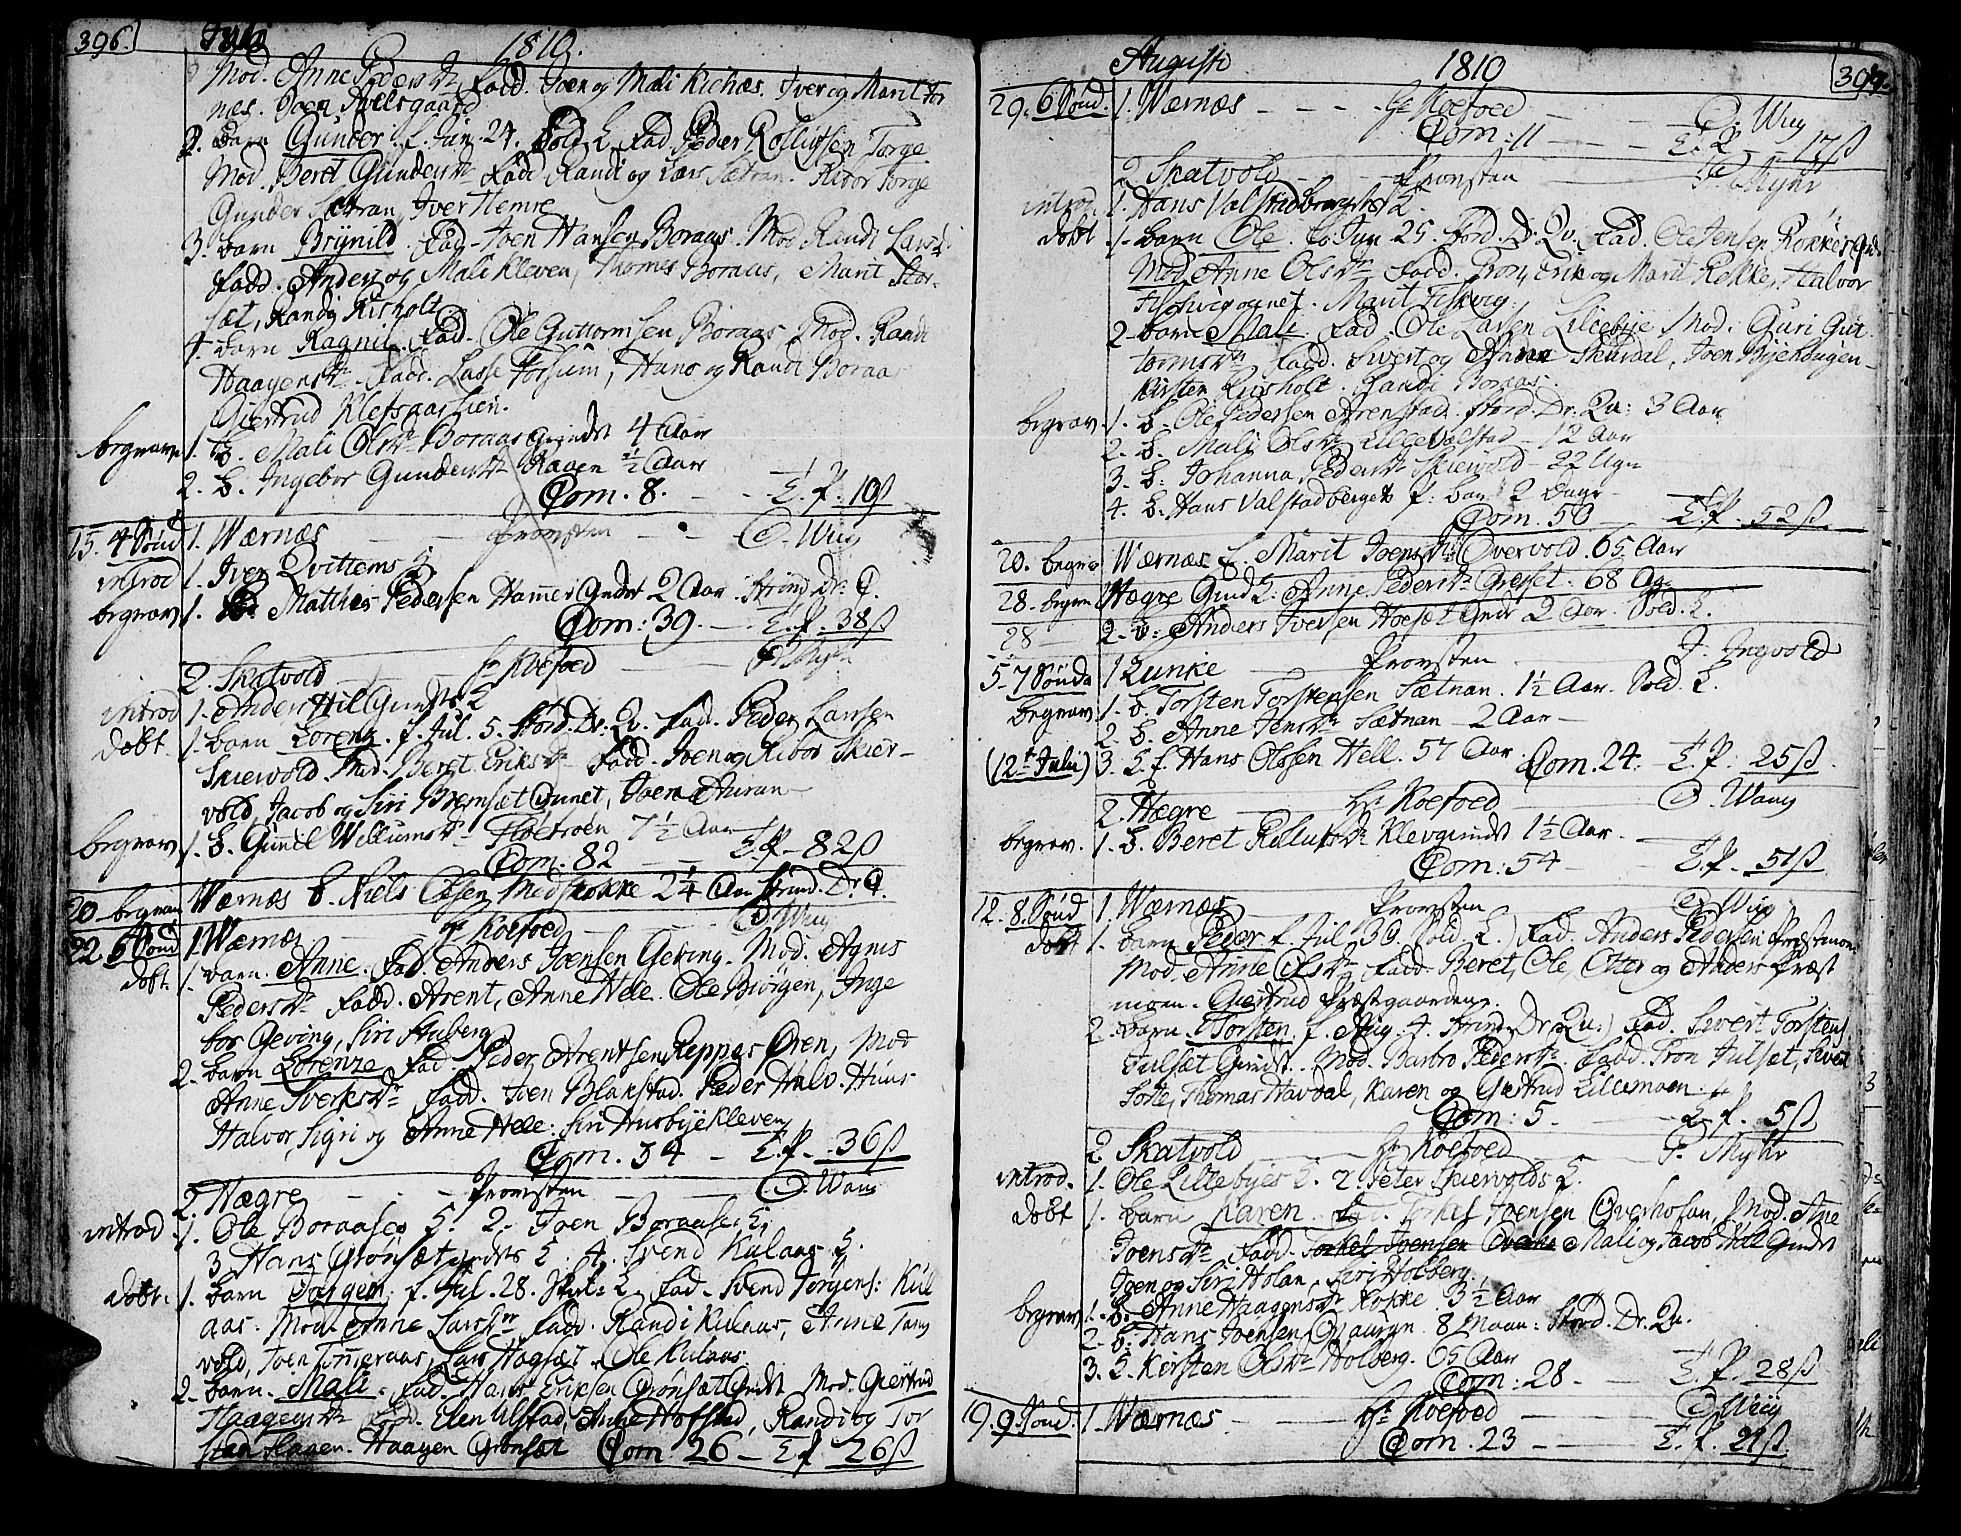 396. Juli 1810.
Mod. Anne Peders Dr Fadd. Joen og Mali Richæs. Iver og Marit For
næs. Joen
2. Barn Gunder f. Jun. 24. Sold. L. Fad. Peder Rollutsen Torge
Mod. Beret Gunders Dr Fadd. Randi og Lars Sætran. Ribor Torge
Gunder Sætran, Iver Hemre
3. Barn Brynild. Fad. Joen Hansen Boraas. Mod. Randi Lars Dr
Fadd. Anders og Mali Kleven, Thomes Boraas, Marit Stor-
sæt, Randi Risholt
4. Barn Ragnil. Fad. Ole Guttormsen Boraas. Mod. Randi
Haagens Dr. Fadd. Lasse Forsum, Hans og Randi Boraas
Giertrud Klefsaashen.
begrav. 1. B. Mali Ols Dr Boraas Grindet 4 Aar
2. B. Ingebor Gunders Dr Raaen ½ Aar
Com. 8. - - T. f. 10 ß
15. 4 Sønd 1. Wærnæs - Provsten - O. Wiig
introd 1. Iver Qvittems L
begrav. 1. B. Matthes Pedersen Hammer Gndet 2 Aar. Strind. Dr. Q.
Com: 39. - T. f. 38 ß
2. Skatvold - Hr Koefoed - P. Myhr
introd 1. Anders Hil Gundets L
døbt 1. Barn Lorenz f. Jul. 5. Stord. Dr. Qv. Fad. Peder Larsen
Skiervold. Mod. Beret Eriks Dr Fadd. Joen og Ribor Skier-
vold, Jacob og Siri Bremsæt Gunet, Joen Auran
begrav. 1. B. Gunil Willums Dr Fløtrøen 7½ Aar
Com. 82 - T. f. 82 ß
20 begrav Wærnæs B. Niels Olsen Midskokke 2¼ Aar Strind. Dr. Q.
22. 5 Sønd 1. Wærnæs - Hr Koefoed - O. Wiig
døbt. 1. Barn. Anne. Fad. Anders Joensen Geving. Mod. Agnis
Peders Dr. Fadd. Arent, Anne Hele. Ole Biørgen, Inge
bor Geving, Siri Auberg
2. Barn Lorenze Fad. Peder Arentsen Reppes Øren, Mod
Anne Sverks Dr Fadd. Joen Blakstad. Peder Halv. Huus
Halvor, Sigri og Anne Hele. Siri Husbyekleven
Com. 34 - T. f. 36 ß
2. Hægre - Provsten - O. Wang
introd. 1. Ole Boraases L. 2. Joen Boraases L
3. Hans Grønsæt gndets L. 4. Svend Kulaas L.
døbt. 1. Barn Jørgen f. Jul. 28. L. Fad. Svend Jørgens: Kul
aas. Mod. Anne Lars Dr Fadd. Randi Kulaas, Anne Fang
vold, Joen Timeraas, Lars Hogsæt. Ole Kulaas
2. Barn. Mali. Fad. Hans Eriksen Grønsæt Gndet Mod. Giertrud
Haagens Dr Fadd. Elen Ulstad, Anne Hofstad, Randi og Tor
sten Raaen. Haagen Grønsæt Com. 26 - T. f. 26 ß
Augusti 1810 397.
29. 6 Sønd. 1. Wærnæs - - - Hr Koefoed - O. Wiig
Com: 11 - - T. f. - 17 ß
2. Skatvold - - Provsten - P. Myhr
introd. 1. Hans Valstadbergets L.
døbt 1. Barn Ole. f. Jun. 25. Stord. Dr. Qv. Fad. Ole Jensen Røkkes Gnd.
Mod. Anne Ols Dr Fadd. Erik og Marit Røkke, Halvor
Marit Fiskvig.
2. Barn Mali. Fad. Ole Larsen Lillebye Mod. Guri Gut
torms Dr Fadd. Sivert og Skurdal, Joen Byehaugen
Kirsten Rirsholt. Randi Boraas.
begrav. 1. B. Ole Pedersen Arenstad. Stord. Dr. Qu: 3 Aar
2. B. Mali Ols Dr Lillevalstad - 12 Aar
3. B. Johanna Peders Dr Skiervold - 22 Ugr
4. B. Hans Valstadbergets f: Barn 2 Dage
Com. 50 - T. f. 52 ß
20. begrav Wærnæs L. Marit Joens Dr Overvold. 65 Aar
28. begrav Hægre Gind L. Anne Peders Dr Græset. 68 Aar
28 - 2. B: Anders Iversen Hoesæt Gndr 2 Aar. Sold. L.
5. 7 Sønda 1 Lunke - Provsten - J. Ingvold
begrav 1. B. Torsten Torstensen Sætnan. 1½ Aar. Sold. L.
2. B. Anne Jens Dr Sætnan - 2 Aar -
(12te Julii) 3. L. f. Hans Olssen Hell. 57 Aar. Com. 24. T. f. 25 ß
2. Hægre - Hr Koefoed - O. Wang
begrav. 1. B. Beret Rolluts Dr Klevgrindet 1½ Aar.
Com: 54 - T. f. 51 ß
12. 8. Sønd 1. Wærnæs - Provsten - O. Wiig
døbt 1. Barn Peder f. Jul 30. Sold. L.) Fad. Anders Pedersen Præstmoe.
Mod. Anne Ols Dr Fadd. Beret, Ole, Otter og Anders Præst
moen. Giertrud Præstgaarden.
2. Barn Torsten f. Aug. 4. Strind Dr Qu.) Fad. Sivert Torstens
Julsæt Grindet. Mod. Barbro Peders Dr. Fadd. Tron Julsæt, Sivert
Thomas Havdal, Karen og Giertrud Lillemoen.
Com: 5. - T. f. 5 ß
2. Skatvold - Hr Koefoed - P. Myhr
introd. 1. Ole Lillebyes L. 2. Peter Skiervolds L.
døbt 1. Barn Karen. Fad. Torkel Joensen Overholan, Mod. Ane
Joens Dr. Fadd. Torkel Joensen Mali og Jacob Hill Gndet
Joen og Siri Holan, Siri Holberg.
begrav. 1. B. Anne Haagens Dr Kokke. 3½ Aar
2. B. Hans Joensen 8 Maan: Stord. Dr. Qu.
3. L. Kirsten Ols Dr Holberg. 65 Aar
Com: 28 - T. f. 28 ß
19. 9. Sønd. 1. Wærnæs - Hr Koefoed - O. Wiig
Com. 23 - T. f. 21 ß